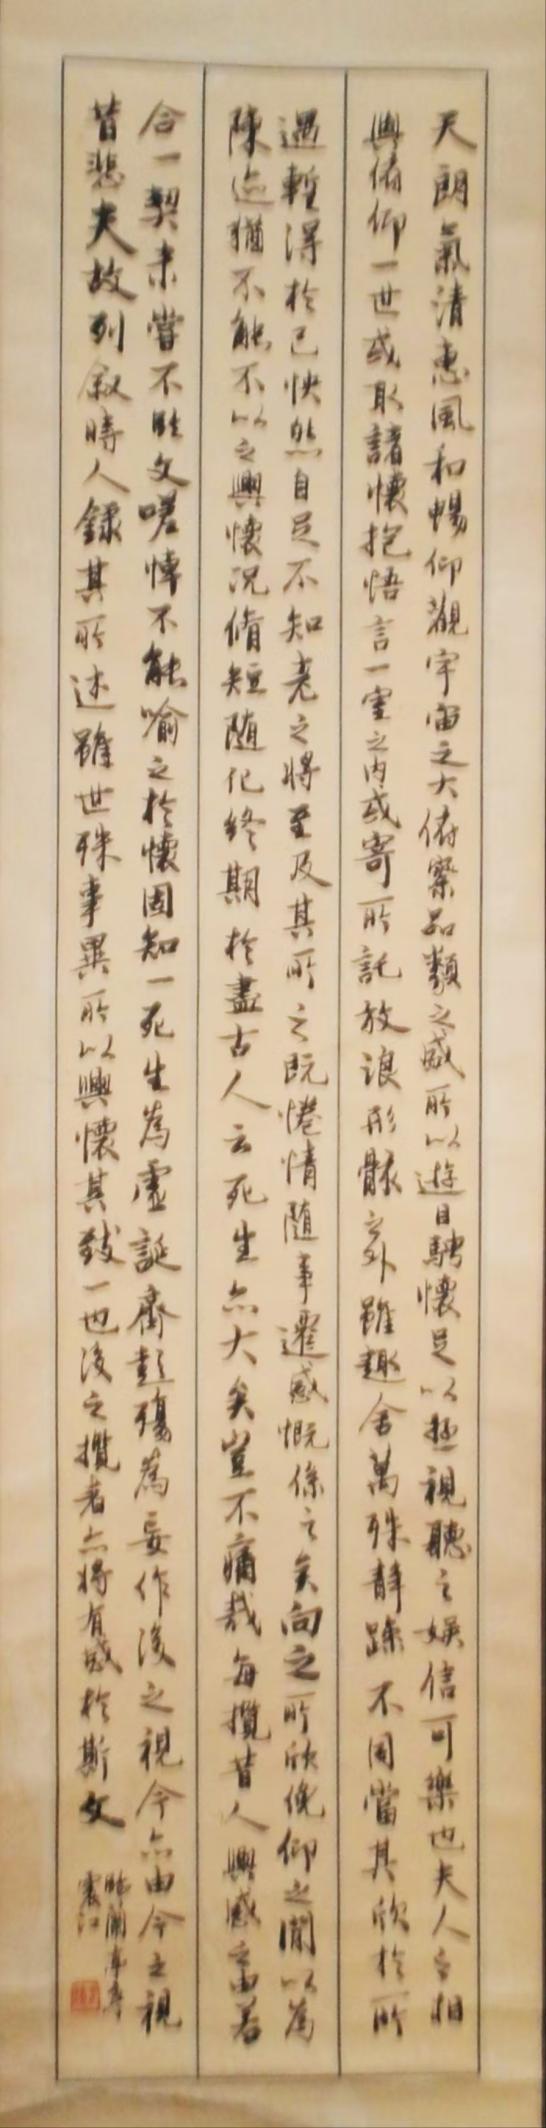 天朗氣清惠風和暢仰觀宇宙之大俯察品類之盛所以遊目騁懷足以極視聽之娛信可樂也夫人之相
與俯仰一世或取諸懷抱悟言一室之內或寄所託放浪形骸之外雖趣舍萬殊靜躁不同當其欣於所
遇暫得於己怏然自足不知老之將至及其所之既惓情隨事遷感慨係之矣向之所欣俛仰之間以為
陳迹猶不能不以之興懷況脩短隨化終期於盡古人云死生亦大矣豈不痛哉每攬昔人興感之由若
合一契未嘗不臨文嗟悼不能喻之於懷固知一死生為虛誕齊彭殤為妄作後之視今亦由今之視
昔悲夫故列叙時人錄其所述雖世殊事異所以興懷其致一也後之攬者亦將有感於斯文
臨蘭亭序